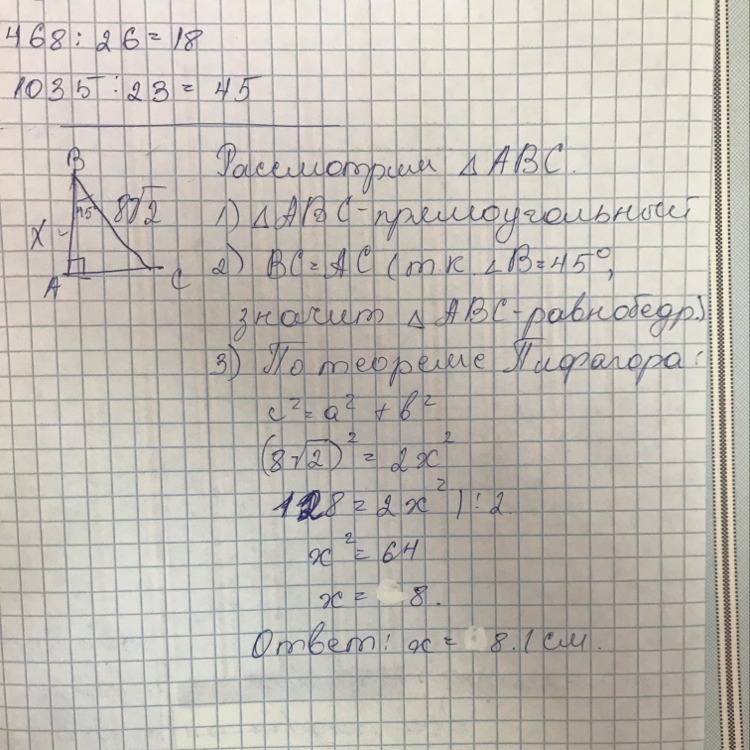 468 : 26 = 18
1035 : 23 = 45
B
45°
8√2
X
A
C
Рассмотрим △ABC.
1) △ABC-прямоугольный
2) BC = AC (т.к. ∠B = 45°,
значит △ABC-равнобедр.)
3) По теореме Пифагора:
c² = a² + b²
(8√2)² = 2x²
128 = 2x² | : 2
x² = 64
x = 8.
Ответ: x = 8. см.